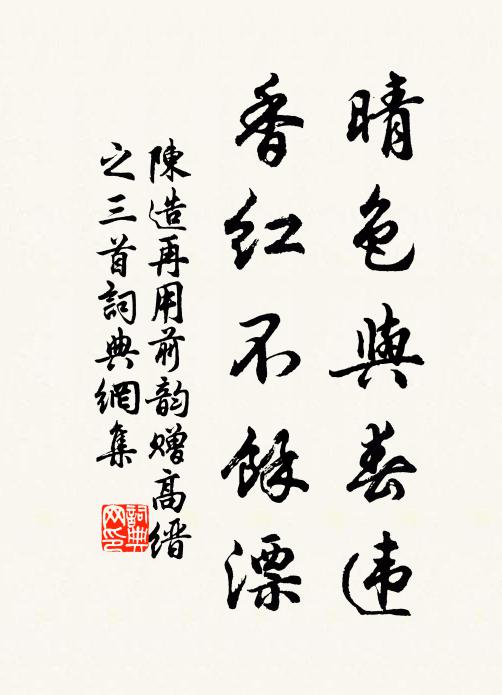 晴色與春违
香红不餘漂
陳造再用前韵赠高缙
之三首詞典網集
詞典
网印